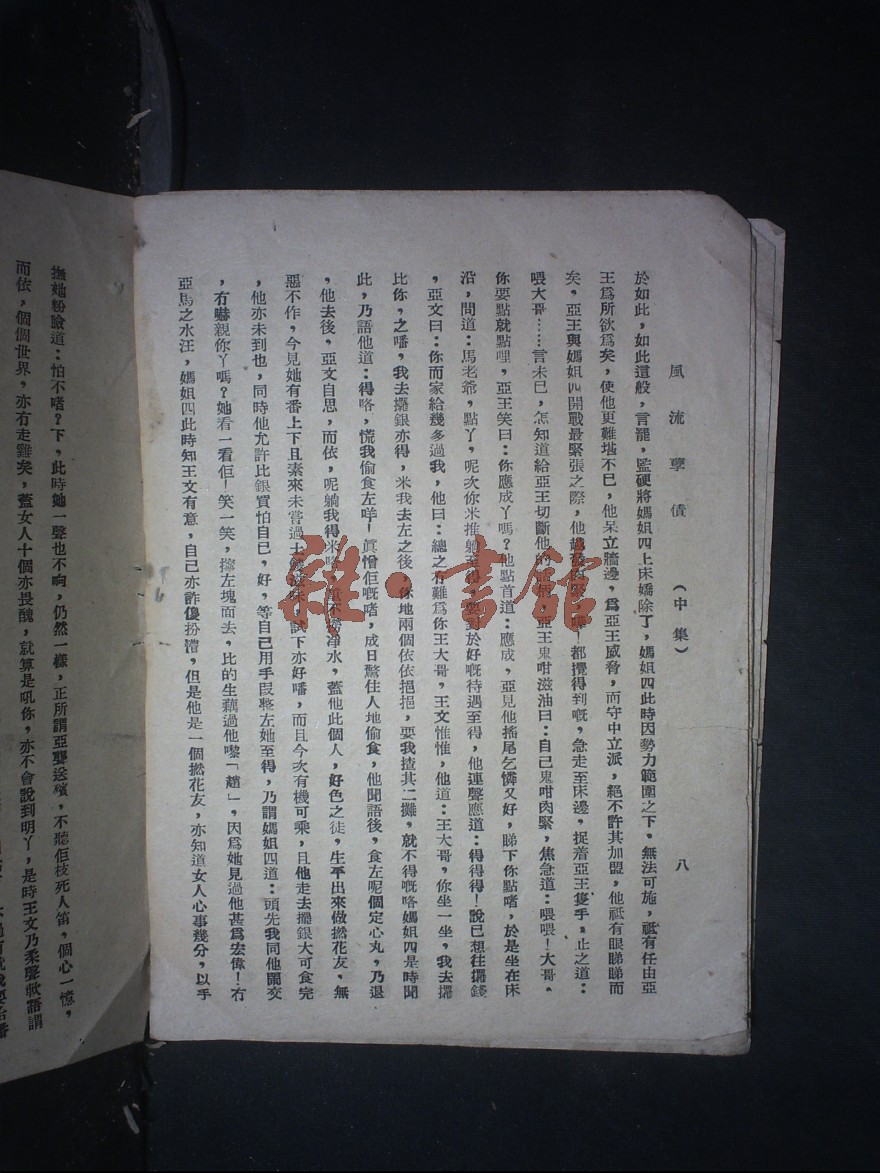 風流孽債 （中集） 八
於如此，如此這般，言罷，監硬將媽姐四上床嬌除了，媽姐四此時因勢力範圍之下，無法可施，祗有任由亞
王爲所欲爲矣，使他更難堪不已，他呆立牆邊，爲亞王威脅，而守中立派，絕不許其加盟，他祗有眼睇睇而
矣，亞王與媽姐四開戰最緊張之際，他 都攪得到嘅，急走至床邊，捉着亞王隻手，止之道：
喂大哥……言未已，怎知道給亞王切斷他的 亞王鬼咁滋油曰：自己鬼咁肉緊，焦急道：喂喂！大哥。
你要點就點哩，亞王笑曰：你應成丫嗎？他點首道：應成，亞見他搖尾乞憐又好，睇下你點嗜，於是坐在床
沿，問道：馬老爺，點丫，呢次你米推躺至得，要對於好嘅待遇至得，他連聲應道：得得得！說已想往攞錢
，亞文曰：你而家給幾多過我，他曰：總之冇難爲你王大哥，王文惟惟，他道：王大哥，你坐一坐，我去攞
比你，之噃，我去攞銀亦得，米我去左之後，你地兩個依依挹挹，要我揸其二攤，就不得嘅咯媽姐四是時聞
此，乃語他道：得咯，慌我偷食左咩！眞憎佢嘅嗜，成日驚住人地偷食，他聞語後，食左呢個定心丸，乃退
，他去後，亞文自思，而依，呢躺我得米 淨水，蓋他此個人，好色之徒，生平出來做撚花友，無
惡不作，今見她有番上下且素來未嘗過 試下亦好噃，而且今次有機可乘，且他走去攞銀大可食完
，他亦未到也，同時他允許比銀買怕自已，好，等自己用手段整左她至得，乃謂媽姐四道：頭先我同他開交
，冇嚇親你丫嗎？她看一看佢！笑一笑，擰左塊面去，比的生藕過他嚟「趙」，因爲她見過他甚爲宏偉！冇
亞馬之水汪，媽姐四此時知王文有意，自己亦詐傻扮懵，但是他是一個撚花友，亦知道女人心事幾分，以手
撫她粉臉道：怕不嗜？下，此時她一聲也不响，仍然一樣，正所謂亞聾送殯，不聽佢枝死人笛，個心一憶，
而依，個個世界，亦冇走雞矣，蓋女人十個亦畏醜，就算是吼你，亦不會說到明丫，是時王文乃柔聲軟語謂
雜·書館